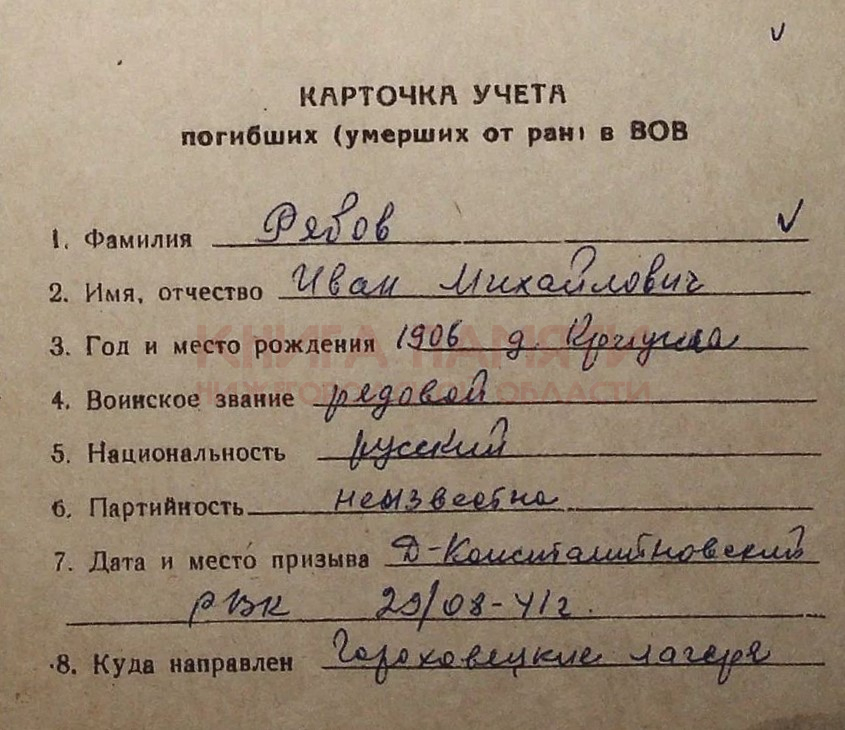 КАРТОЧКА УЧЕТА
погибших (умерших от ран) в ВОВ
1. Фамилия Рябов
2. Имя, отчество Иван Михайлович
КНИГА ПАМЯТИ
3. Год и место рождения 1906 д.
НИЖЕГОРОДСКОЙ ОБЛАСТИ
4. Воинское звание рядовой
5. Национальность русский
6. Партийность неизвестна
7. Дата и место призыва Д-Константиновский
РВК 29/08-41г.
8. Куда направлен Гороховецкие лагеря